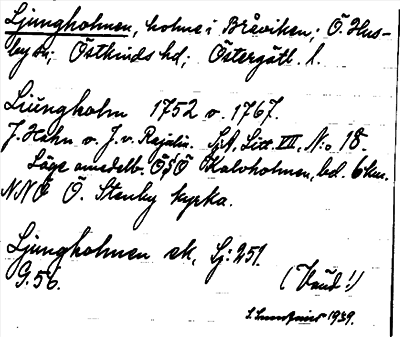 Ljungholmen, holme i Bråviken; Ö. Hus-
by sn; Östkinds hd; Östergötl. l.
Liüngholm 1752 v. 1767.
J. Hahn v. J. v. Rajalin. SjA, Litt. VII, N:o 18.
Läge omedelb. ÖSÖ Kalvholmen, bel. 6 km.
NNÖ Ö. Stenby kyrka.
Ljungholmen ek, Sj: 251.
G. 56. (Vand!)
1939.